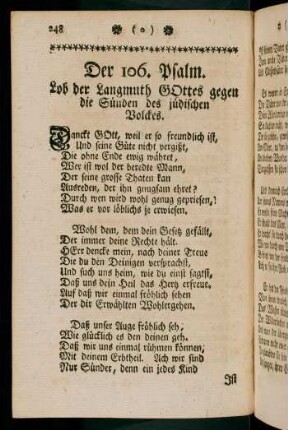 248 ( o )
Der 106. Psalm.
Lob der Langmuth GOttes gegen
die Sünden des jüdischen
Volckes.
Danckt GOtt, weil er so freundlich ist,
Und seine Güte nicht vergißt,
Die ohne Ende ewig währet,
Wer ist wol der beredte Mann,
Der seine grosse Thaten kan
Ausreden, der ihn gnugsam ehret?
Durch wen wird wohl genug gepriesen,
Was er vor löblichs je erwiesen.
Wohl dem, dem dein Gesetz gefällt,
Der immer deine Rechte hält.
HErr dencke mein, nach deiner Treue
Die du den Deinigen versprachst,
Und such uns heim, wie du einst sagtst,
Daß uns dein Heil das Hertz erfreue,
Auf daß wir einmal fröhlich sehen
Der dir Erwählten Wohlergehen.
Daß unser Auge fröhlich seh,
Wie glücklich es den deinen geh.
Daß wir uns einmal rühmen können,
Mit deinem Erbtheil. Ach wir sind
Nur Sünder, denn ein jedes Kind
Ist